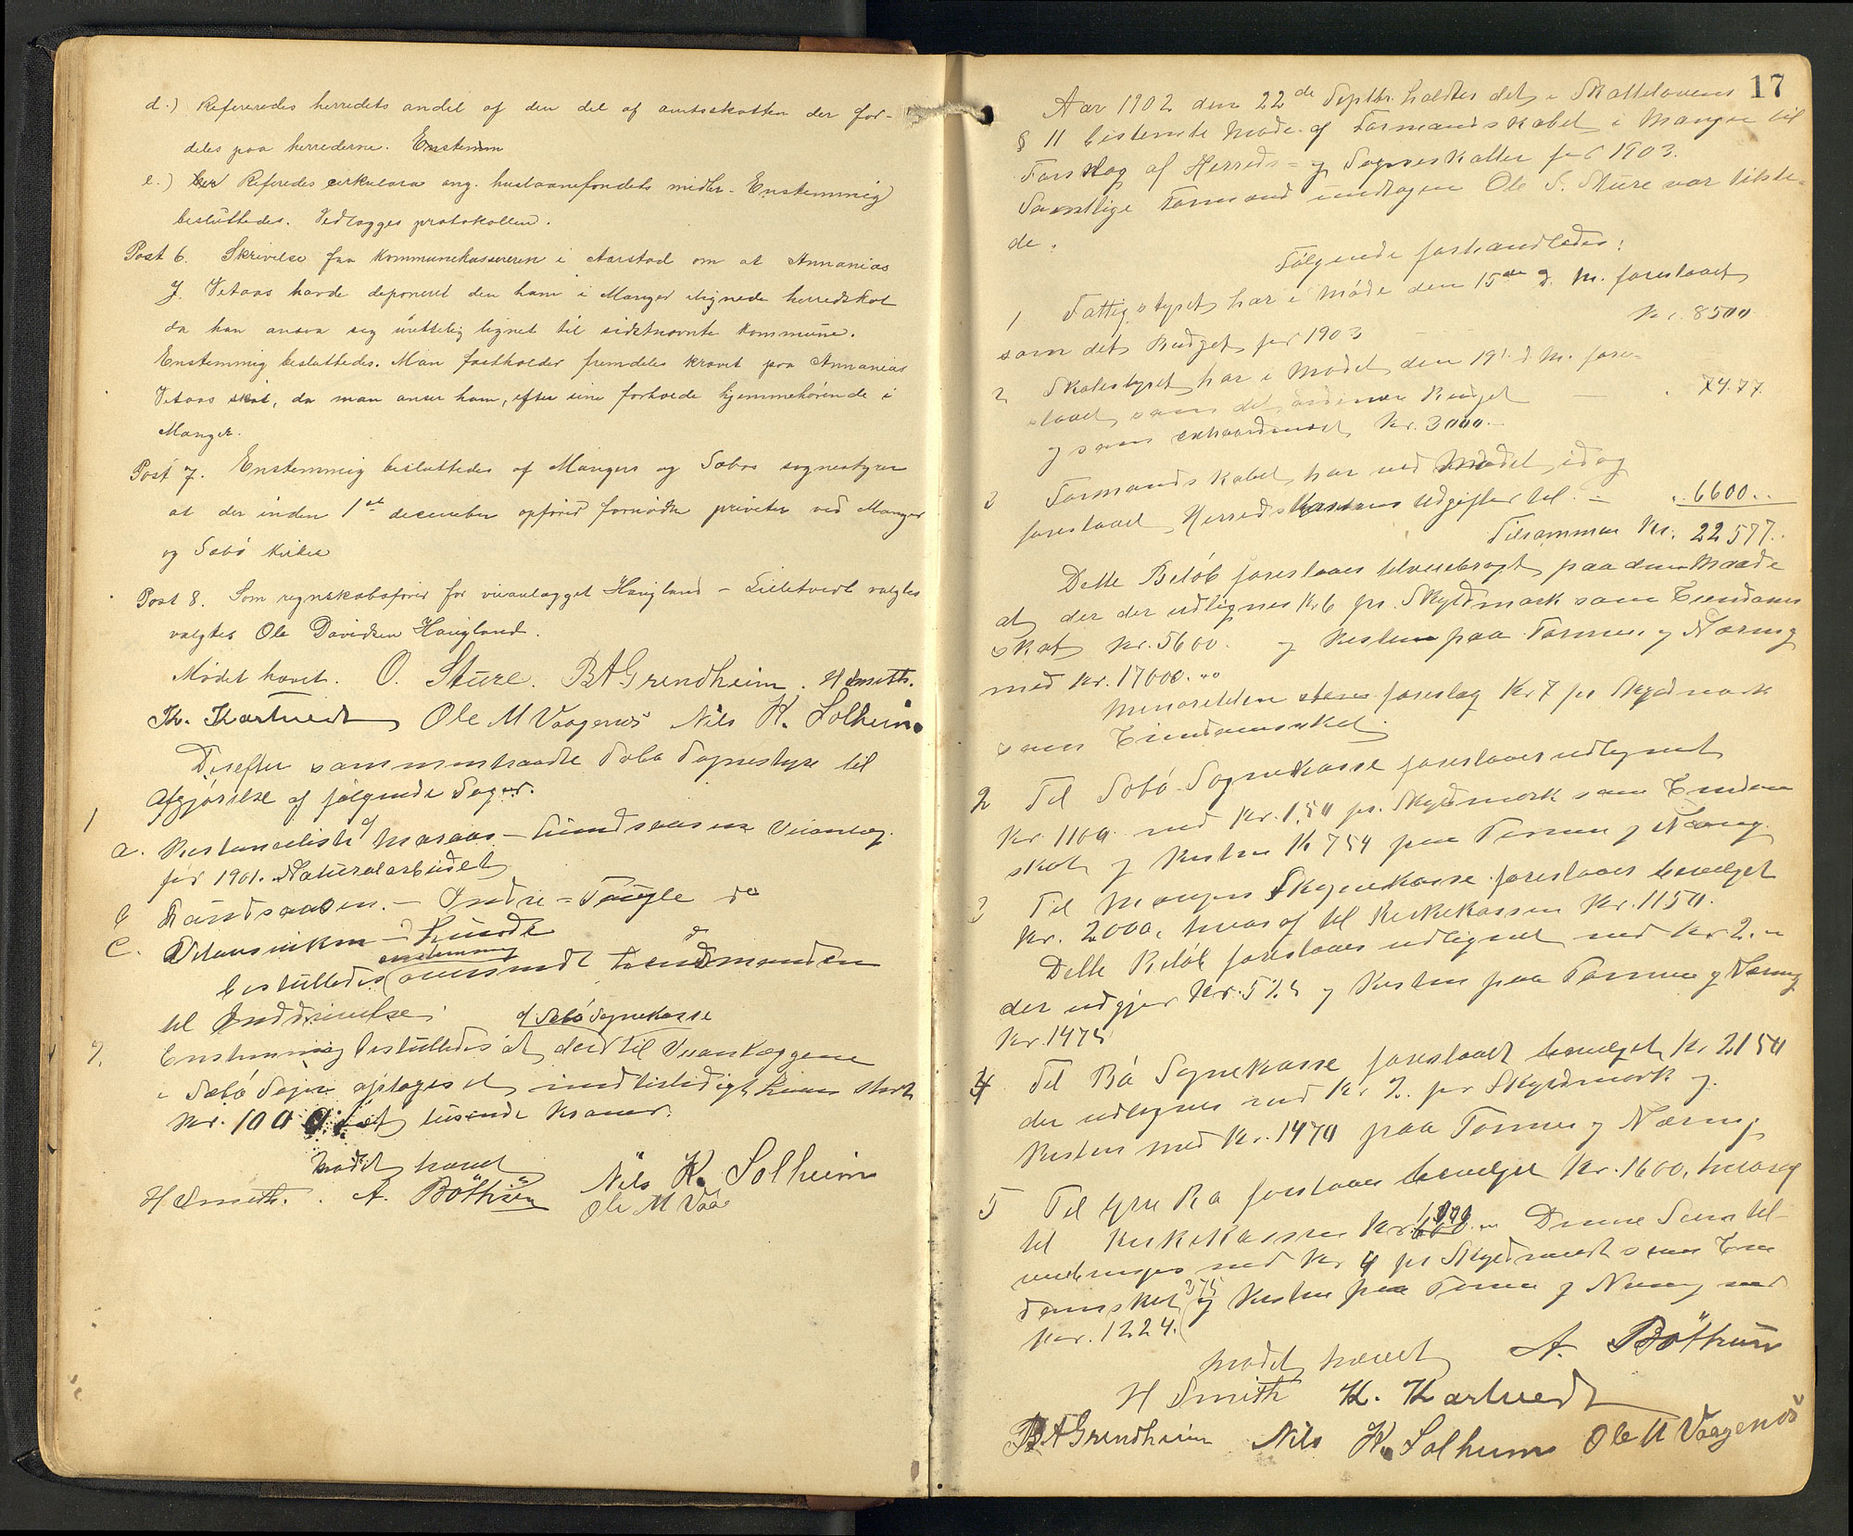 d.) Refereredes herredets andel af den del af amtsskatten der for-
deles paa herrederne. Enstemm
e.) Referedes cirkulære ang. huslaanefondets midler. Enstemmig
besluttedes. Vedlægges protokollen.
Post 6. Skrivelse fra Kommunekassereren i Aarstad om at Annanias
J. Vetaas havde deponeret den ham i Manger ilignede herredskat
da han ansaa sig urettelig lignet til sidstnævnte kommune.
Enstemmig besluttedes. Man fastholder fremdeles kravet paa Annanias
Vetaas skat, da man anser ham, efter sine forhold hjemmehørende i
Manger.
Post 7. Enstemmig besluttedes af Mangers og Sæbøs sognestyrer
at der inden 1ste december opføres fornødne priveter ved Manger
og Sæbø kirker
Post 8. Som regnskabsfører for veianlægget Haugland - Lilletvedt valgtes
valgtes Ole Davidsen Haugland.
Mødet hævet. O. Sture. BAGrendheim. H Smith.
K. Kartvedt Ole M Vaagenes Nils K. Solheim
Derefter sammentraadte Sæbø Sognestyre til
Afgjørelse af følgende Sager.
1
a. Restanceliste af Maraas - Lundsaasen Veianlæg
for 1901. Naturalarbeidet
b Lundsaasen - Indre - Fugle do
c. - Lunde do
enstemmig
besluttedes oversendt Lensmanden
til Inddrivelse.
af Sæbø Sognekasse
2. Enstemmig besluttedes at der til Veianlæggene
i Sæbø Sogn optages et midlertidigt Laan stort
Kr. 1000 et tusende Kroner.
Mødet hævet Nils K. Solheim
H Smith. A. Böthun Ole M Vaa
17
Aar 1902 den 22de Septbr. holdtes det i Skattelovens
§ 11 bestemte Møde af Formandskabet i Manger til
Forslag af Herreds- og Sogneskatter for 1903.
Samtlige Formænd undtagen Ole S. Sture var tilste-
de.
Følgende forhandledes:
1 Fattigstyret har i Møde den 15de d. M. foreslaaet
som dets Budget for 1903 - - Kr. 8500
2 Skolestyret har i Mødet den 19. d. M. fore-
slaaet som det ordinære Budget - 7477.
og som extraordinært Kr. 3000.-
3 Formandskabet har ved Mødet idag
foreslaaet Herredskassens Udgifter til - 6600..
Tilsammen Kr. 22577.
Dette Beløb foreslaaes tilveiebragt paa den Maade
at der der udlignes Kr 6 pr. Skyldmark som Eiendoms
skat Kr. 5600. og Resten paa Formue og Næring
med Kr. 17000.
Minoriteten foreslog Kr 7 pr Skyldmark
som Eiendomsskat.
2 Til Sæbø Sognekasse foreslaaes udlignet
Kr 1100 med Kr. 1,50 pr. Skyldmark som Eiendom
skat og Resten Kr 754 paa Formue og Næring.
3 Til Mangers Sognekasse foreslaaes bevilget
Kr. 2000, hvoraf til Kirkekassen Kr. 1150.
Dette Beløb foreslaaes udlignet med Kr 2.-
der udgjør Kr. 525 og Resten paa Formue og Næring
Kr. 1475
4 Til Bø Sognekasse foreslaaet bevilget Kr 2150
der udlignes med Kr 2. pr Skyldmark og
Resten med Kr. 1470 paa Formue og Næring.
5 Til Ytre Bø foreslaaes bevilget Kr. 1600, hvoraf
til Kirkekassen Kr. Denne Sum til
veiebringes med Kr 4 pr Skyldmark som Eien
domsskat 375 og Resten paa Formue og Næring med
Kr. 1224.
Mødet hævet A. Böthun
H Smith K. Kartvedt
BAGrendheim Nils K. Solheim Ole M Vaagenes